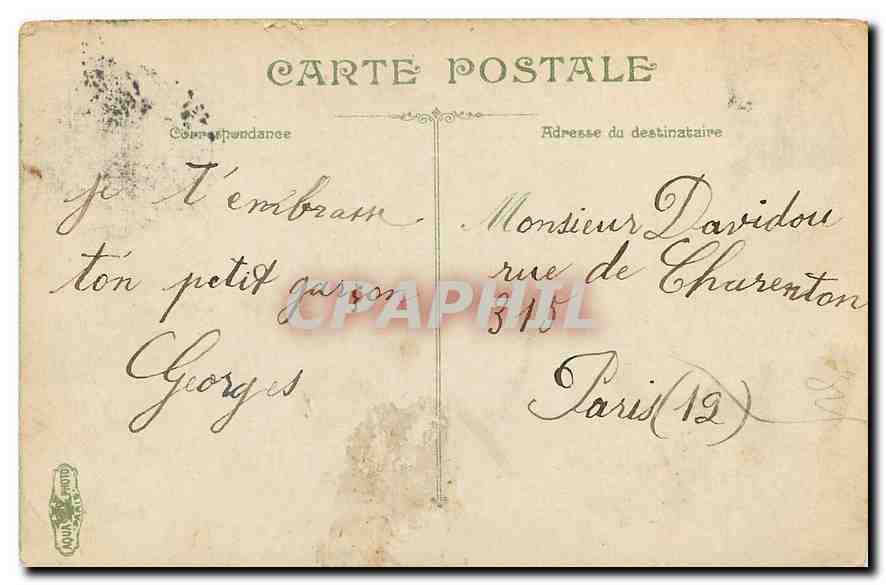 CARTE POSTALE
Correspondance
Adresse du destinataire
je t'embrasse
ton petit garçon
Georges
Monsieur Davidou
rue de Charenton
315
Paris (12)
CPAPHIL
AQUA PHOTO
PARIS